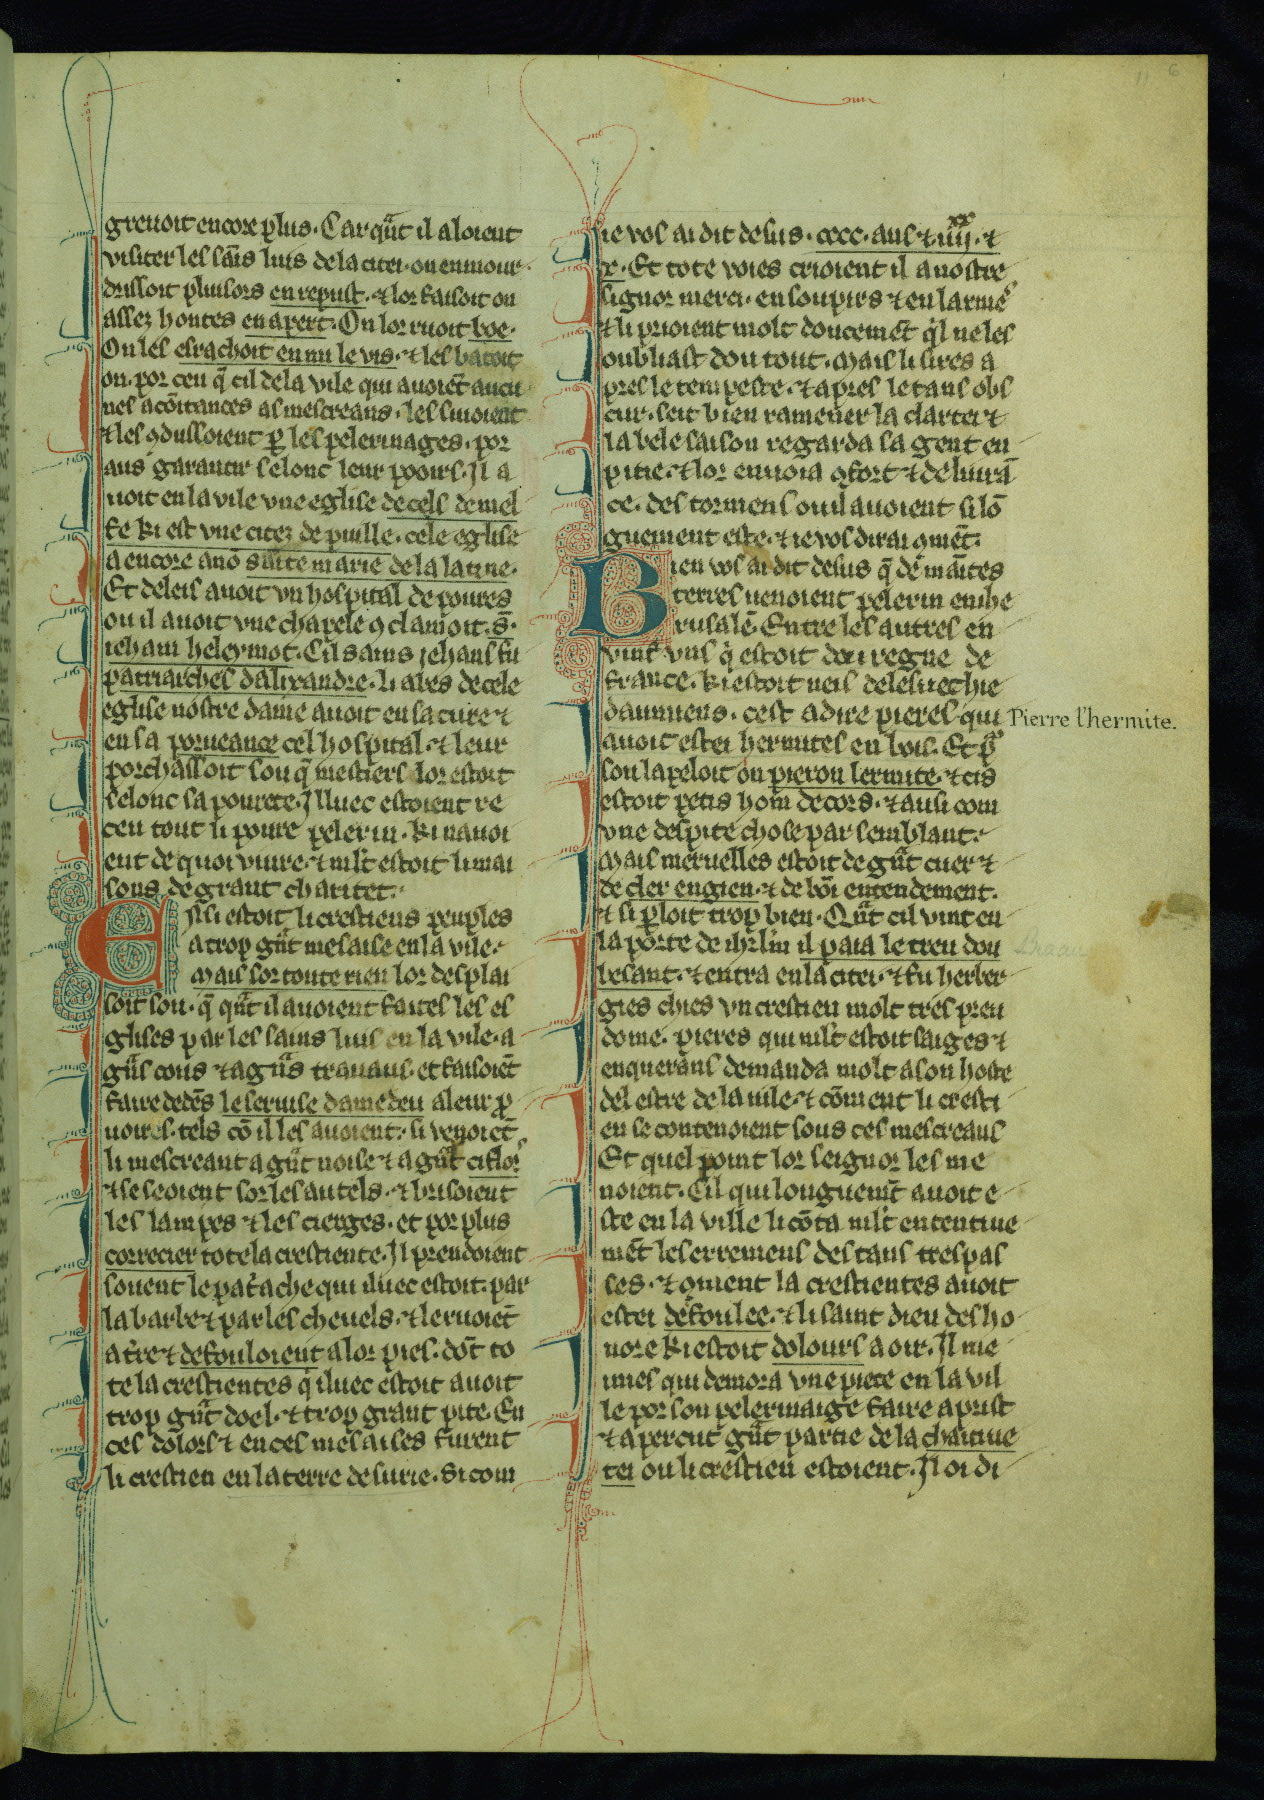 grenoit encore plus. Car qu̅t il aloient
visiter les sai̅s luis de la citei. ou en mour
drissoit plusors en repust. ⁊ lor faisoit on
assez hontes en apert. On lor ruoit boe.
Ou les esrachoit en mi le vis. ⁊ les batoit
on. por ceu q̅ cil de la vile qui auoie̅t aucu
nes aco̅itances as mescreans. les siuoient
⁊ les ꝯdussoient ꝑ les pelerinages. por
aus garantir selonc leur pooirs. Il a
uoit en la vile vne eglise de cels de mel
fe ki est vne citez de puille. cele eglise
a encore a no̅ sainte marie de la latine.
Et deleis auoit vn hospital de poures
ou il auoit vne chapele ꝯ clamoit. s̅.
iehan heleymot. Cil sains jehans fu
patriarches dalixandre. li abes de cele
eglise nostre dame auoit en sa cure ⁊
en sa porueance cel hospital. ⁊ leur
porchassoit sou q̅ mestiers lor estoit
selonc sa pourete. Illuec estoient re
ceu tout li poure pelerin. ki nauoi
ent de quoi viure. ⁊ ml't estoit li mai
sons de grant charitet.
Ensi estoit li crestiens peuples
a trop gra̅t mesaise en la vile.
Mais sor toute rien lor desplai
soit sou. q̅ qua̅t il auoient faites les es
glises par les sains luis en la vile. a
gra̅s cous ⁊ a gra̅s trauaus. et faisoie̅t
faire dede̅s le seruise damedeu a leur po
uoirs. tels co̅ il les auoient. si venoie̅t
li mescreant a gra̅t noise ⁊ a gra̅t ciflors
⁊ se seoient sor les autels. ⁊ brisoient
les lampes ⁊ les cierges. et por plus
correcier tote la crestiente. Il prendoient
souent le pat'ache qui iluec estoit. par
la barbe ⁊ par les cheuels. ⁊ le ruoie̅t
a t're ⁊ defouloient a lor pies. do̅t to
te la crestientes q̅ iluec estoit auoit
trop gra̅t doel. ⁊ trop grant pite. En
ces dolors ⁊ en ces mesaises furent
li crestien en la terre de surie. Si com
ie vos ai dit desus. cccc. ans ⁊ iiij.xx ⁊
x. Et tote voies crioient il a nostre
signor merci. en soupirs ⁊ en larmes
⁊ li prioient molt douceme̅t q'l ne les
oubliast dou tout. Mais li sires a
pres le tempeste. ⁊ apres le tans obs
cur. seit bien ramener la clartei ⁊
la bele saison regarda sa gent en
pitie. ⁊ lor enuoia ꝯfort ⁊ deliura̅
ce. des tormens ou il auoient si lo̅
guement este. ⁊ ie vos dirai ꝯme̅t.
Bien vos ai dit desus q̅ de mai̅tes
terres uenoient pelerin en ihe
rusale̅. Entre les autres en
vint vns q' estoit dou regne de
france. ki estoit neis de lesuechie
damiens. cest a dire pieres qui
auoit estei hermites en bois. Et por
sou lapeloit on pieron lermite. ⁊ cis
estoit petis hom de cors. ⁊ ausi com
vne despite chose par semblant.
Mais meruelles estoit de gra̅t cuer ⁊
de cler engien. ⁊ de boi̅ entendement.
⁊ si ꝑloit trop bien. Qua̅t cil vint en
la porte de ihrl'm il paia le treu dou
besant. ⁊ entra en la citei. ⁊ fu herber
gies chies vn crestien molt tres preu
dome. pieres qui ml't estoit saiges ⁊
enquerans demanda molt a son hoste
del estre de la uile. ⁊ co̅ment li cresti
en se contenoient sous ces mescreans
Et quel point lor seignor les me
noient. Cil qui longueme̅t auoit e
ste en la ville li co̅ta ml't ententiue
me̅t les erremens des tans trespas
ses. ⁊ ꝯment la crestientes auoit
estei defoulee. ⁊ li saint dieu desho
nore ki estoit dolours a oir. Il me
imes qui demora vne piece en la vil
le por son pelerinaige faire aprist
⁊ apercut gra̅t partie de la chaitiue
tei ou li crestien estoient. Il oi di
Pierre l'hermite.
11 6